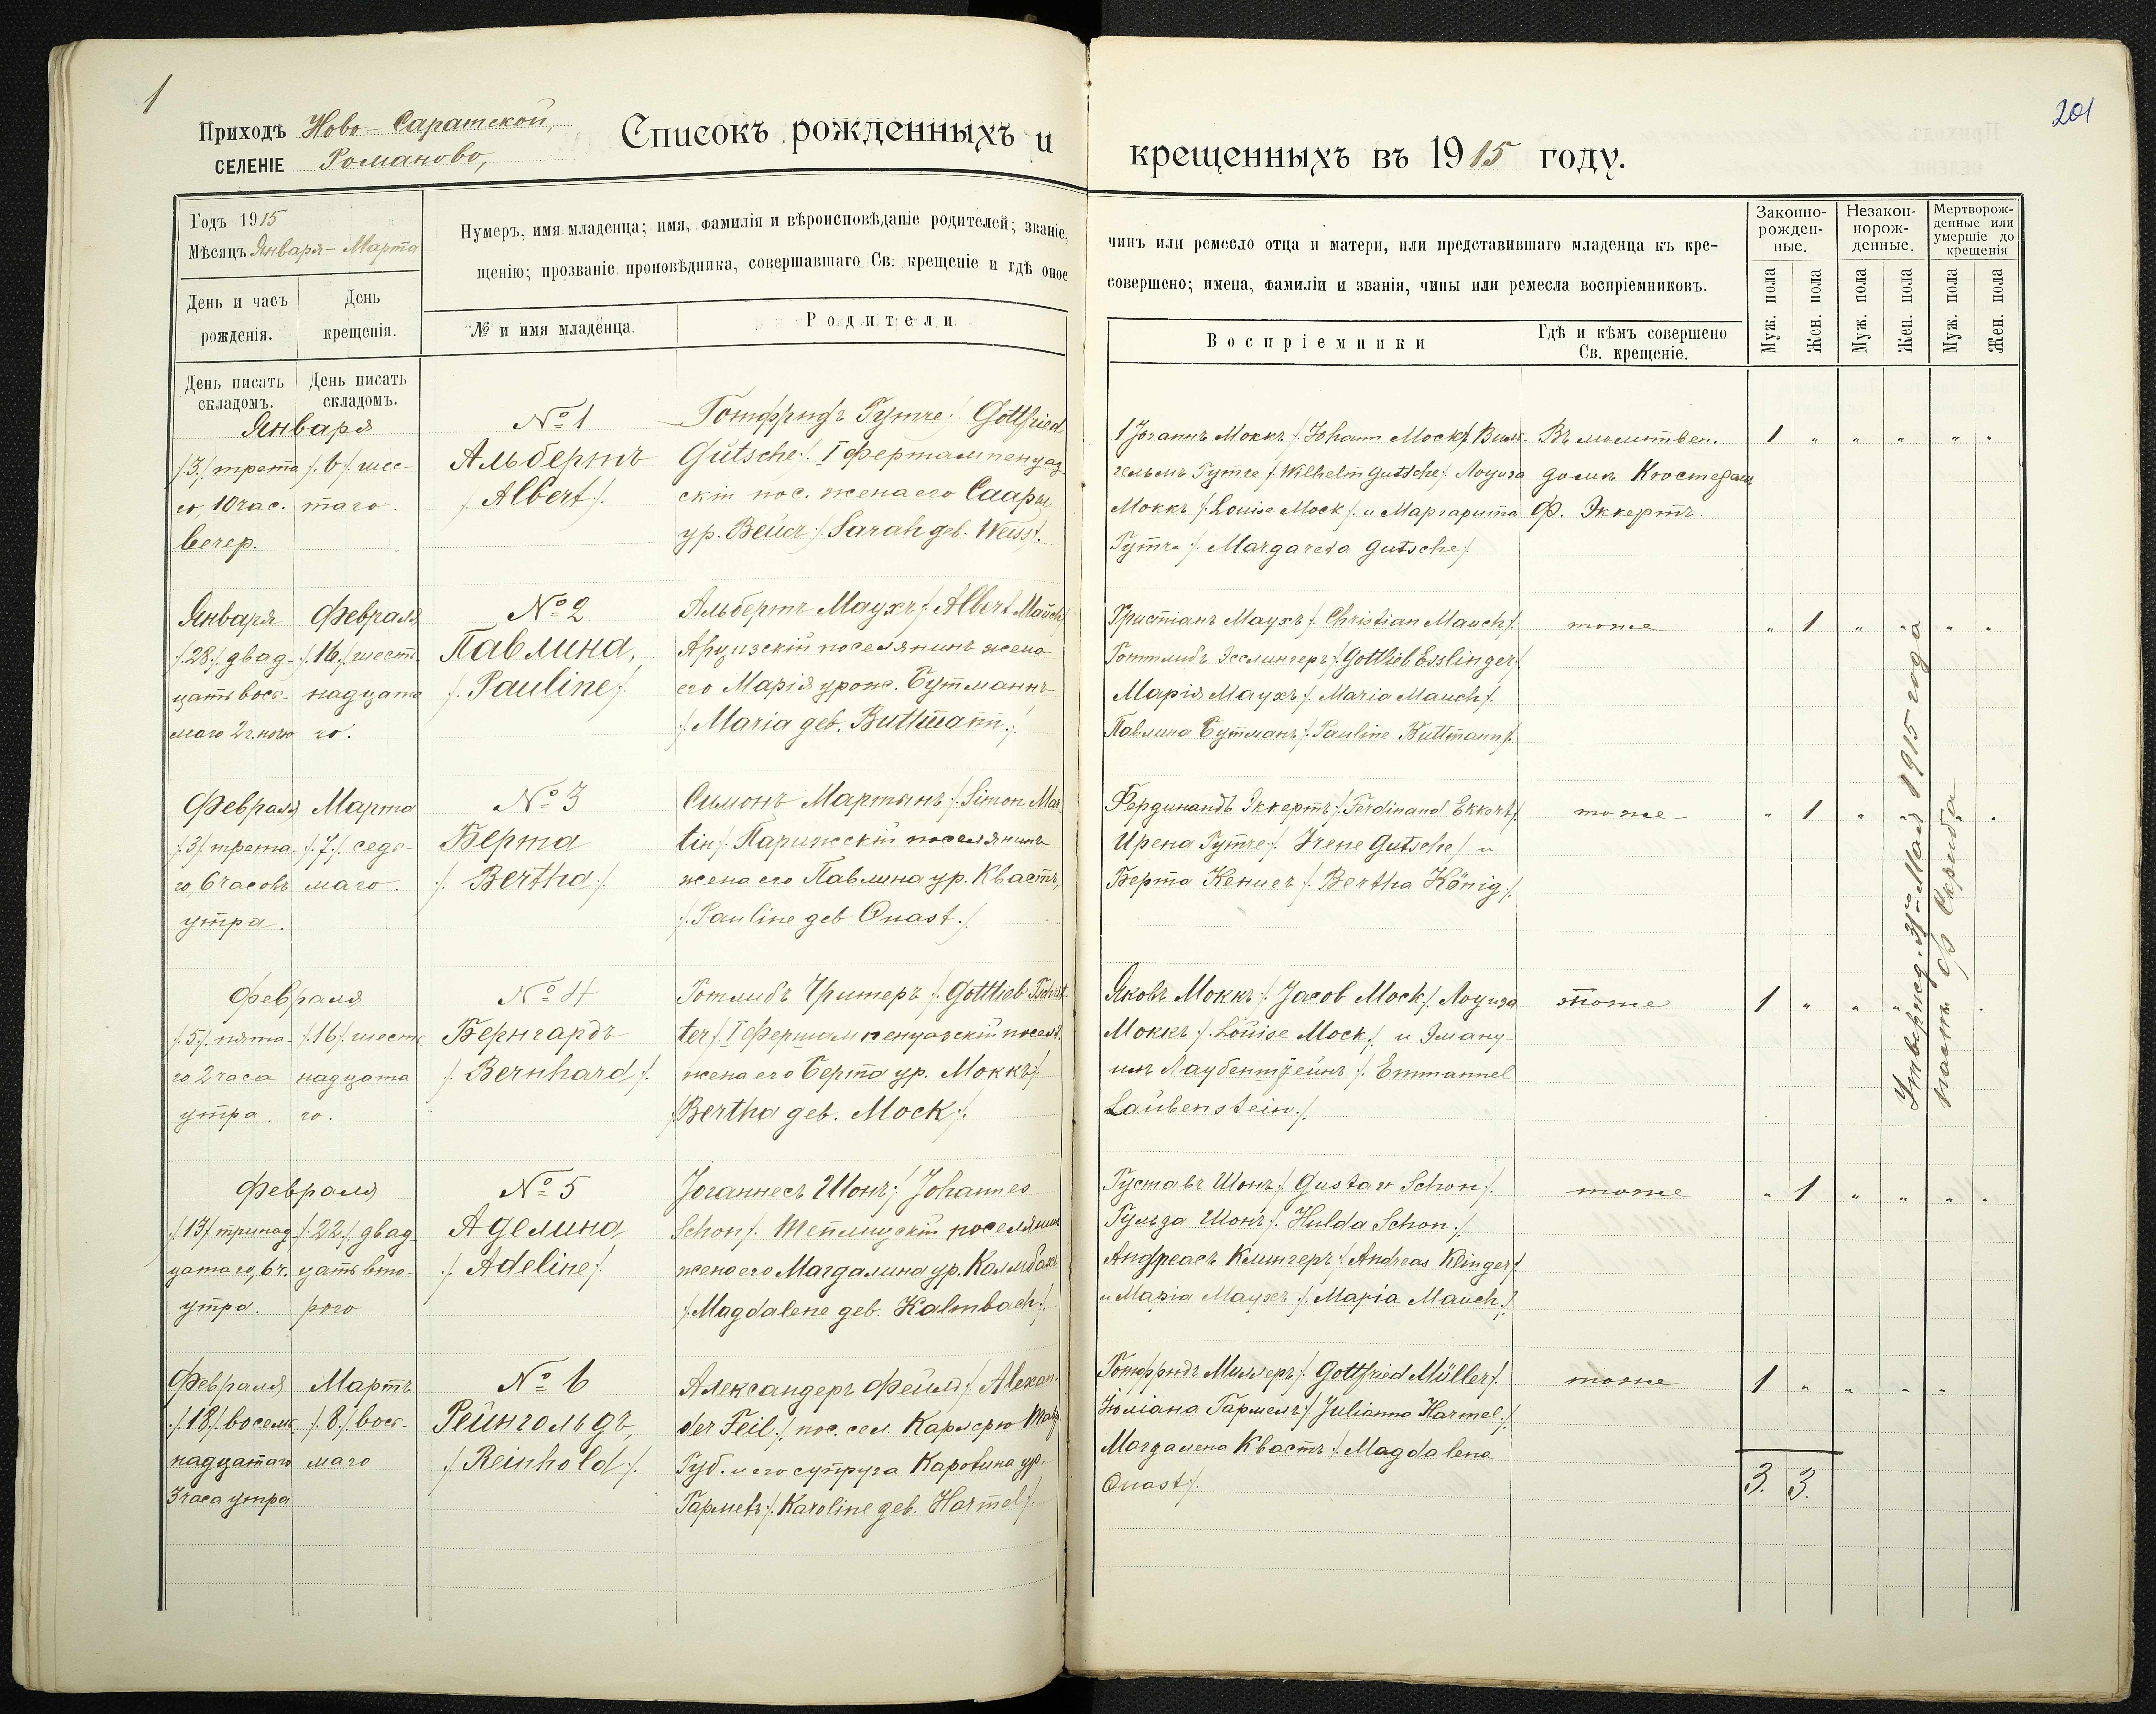 1
201
Приходъ Ново-Саратской,
СЕЛЕНІЕ Романово,
Списокъ рожденныхъ и
крещенныхъ въ 1915 году.
Годъ 1915
Мѣсяцъ Января - Марта
День и часъ рожденія.
День крещенія.
Нумеръ, имя младенца; имя, фамилія и вѣроисповѣданіе родителей; званіе,
щенію; прозваніе проповѣдника, совершавшаго Св. крещеніе и гдѣ оное
№ и имя младенца.
Родители
чинъ или ремесло отца и матери, или представившаго младенца къ кре-
совершено; имена, фамиліи и званія, чины или ремесла воспріемниковъ.
Воспріемники
Гдѣ и кѣмъ совершено
Св. крещеніе.
Законно-
рожден-
ные.
Незакон-
норож-
денные.
Мертворож-
денные или
умершіе до
крещенія
Муж. пола
Жен. пола
Муж. пола
Жен. пола
Муж. пола
Жен. пола
День писать
складомъ.
День писать
складомъ.
Января
/3./ трета
го, 10 час.
вечер.
/.6/. шес-
таго.
№ 1
Альбертъ
/. Albert /.
Готфридъ Гутче /. Gottfried
Gütsche /. I Фершампенуаз-
скій пос. жена его Саары
ур. Вейсъ /. Sarah geb. Weiss /.
Іоганнъ Моккъ /. Johann Mock /. Виль-
гельмъ Гутче /. Wilhelm Gutsche /. Лоуиза
Моккъ /. Louise Mock /. и Маргарита
Гутче /. Margareta Gutsche /.
Въ молитвен.
домѣ Кюстеромъ
Ф. Эккертъ.
1 " " " " "
Января
/.28./ двад-
цать вось-
маго 2 ч. ночи
Февраля
/.16./ шест-
надцата
го.
№ 2.
Павлина,
/. Pauline /.
Альбертъ Маухъ /. Albert Mauch /.
Арцизскій поселянинъ жена
его Марія урож. Бутманнъ
/. Maria geb. Buttmann. /.
Христіанъ Маухъ /. Christian Mauch /.
Готтлибъ Эсслингеръ /. Gottlieb Esslinger /.
Марія Маухъ /. Maria Mauch /.
Павлина Бутманъ /. Pauline Buttmann /.
тоже
" 1 " " " "
Февраля
/.3/. трета-
го, 6 часовъ
утра.
Марта
/.7./ седь-
маго.
№ 3
Берта
/. Bertha /.
Симонъ Мартынъ /. Simon Mar-
tin /. Парижскій поселянинъ
жена его Павлина ур. Квастъ,
/. Pauline geb Quast. /.
Фердинандъ Эккертъ /. Ferdinand Ekkert /.
Ирена Гутче /. Irene Gutsche / и
Берта Кенигъ /. Bertha König /.
тоже
" 1 " " " "
Февраля
/.5/. пята-
го 2 часа
утра.
/.16/. шест-
надцата
го.
№ 4
Бернгардъ
/. Bernhard /.
ter /. I Фершампенуазскій посел.
жена его Берта ур. Моккъ /.
/. Bertha geb. Mock /.
Яковъ Моккъ /. Jacob Mock /. Лоуиза
Моккъ /. Louise Mock /. и Эману-
илъ Лаубенштейнъ /. Emmanuel
Laubenstein. /.
тоже
1 " " " " "
Февраля
/.13/. тринад-
цатаго, 6 ч.
утра.
/.22./ двад-
цать вто-
рого
№ 5
Аделина
/. Adeline /.
Іоганнесъ Шонъ /. Johannes
Schon /. Теплицскій поселянинъ
жена его Магдалина ур. Калмбахъ
/. Magdalene geb. Kalmbach /.
Густавъ Шонъ /. Gustav Schon /.
Гульда Шонъ /. Hulda Schon. /.
Андреасъ Клингеръ /. Andreas Klinger /.
и Марія Маухъ /. Maria Mauch. /.
тоже
" 1 " " " "
Февраля
/.18./ восем-
надцатаго
3 часа утра
Мартъ
/.8./ вось-
маго
№ 6
Рейнгольдъ,
/. Reinhold /.
Александеръ Фейль /. Alexan-
der Feil. /. пос. сел. Карлсрю Тавр.
Губ. и его супруга Каролина ур.
Гармель /. Karoline geb. Harmel /.
Готфридъ Миллеръ /. Gottfried Müller /.
Юліана Гармель /. Julianna Harmel. /.
Магдалена Квастъ /. Magdalena
Quast /.
тоже
1 " " " "
3. 3.
Мая 1915 года